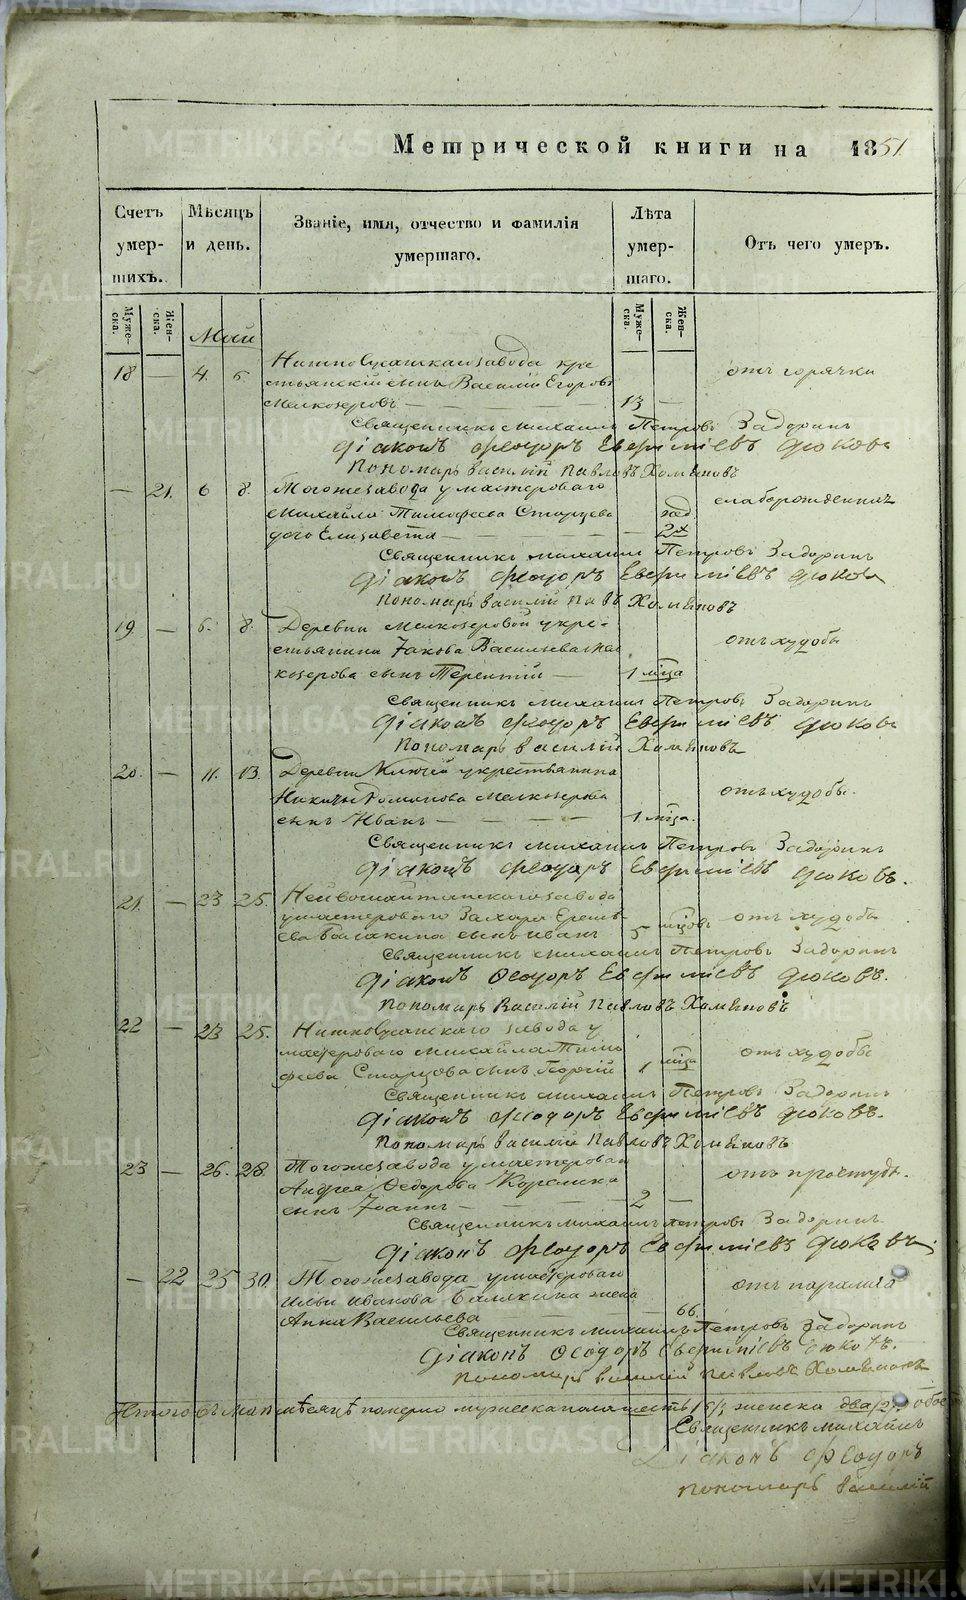 Метрической книги на 1851
Счетъ умер-шихъ.
Мѣсяцъ и день.
Званіе, имя, отчество и фамилія умершаго.
Лѣта умер-шаго.
Отъ чего умеръ.
Муже-ска.
Жен-ска.
Муже-ска.
Жен-ска.
Май
18 — 4. 6 завода кре
стьянскій сынъ Василій Егоровъ отъ горячки
Мелкозеровъ — 13 —
Священникъ Михаилъ Петровъ Задоринъ
Діаконъ Феодоръ Евфиміевъ Дюковъ
Пономарь Василій Павловъ Хомяковъ
— 21. 6 8. Тогоже завода у мастероваго
Михайла Тимофеева Старцева слаборожденная
дочь Елизавета — 2х
Священникъ Михаилъ Петровъ Задоринъ
Діаконъ Феодоръ Евфиміевъ Дюковъ
Пономарь Василій Пав Хомяковъ
19 — 6. 8. Деревни Мелкозеровой у кре-
стьянина Іакова Васильева Мел отъ худобы
козерова сынъ Терентій — 1 мѣца
Священникъ Михаилъ Петровъ Задоринъ
Діаконъ Феодоръ Евфиміевъ Дюковъ
Пономарь Василій Хомяковъ
20. — 11. 13. Деревни Ключей у крестьянина
Никиты Романова Мелкозерова отъ худобы.
сынъ Иванъ — 1 мѣца.
Священникъ Михаилъ Петровъ Задоринъ
Діаконъ Феодоръ Евфиміевъ Дюковъ.
21. — 23 25. завода
у мастероваго Захара Ереме- отъ худобы
ева сынъ Иванъ 5 мѣцовъ
Священникъ Михаилъ Петровъ Задоринъ
Діаконъ Феодоръ Евфиміевъ Дюковъ.
Пономарь Василій Павловъ Хомяковъ
22 — 23 25. завода у
мастероваго Михайла Тимо отъ худобы
феева Старцова сынъ Георгій 1 мѣца
Священникъ Михаилъ Петровъ Задоринъ
Діаконъ Феодоръ Евфиміевъ Дюковъ.
Пономарь Василій Павловъ Хомяковъ
23 — 26. 28. Тогоже завода у мастероваго
Андрея Федорова отъ простуды.
сынъ Іоаннъ — 2 —
Священникъ Михаилъ Петровъ Задоринъ.
Діаконъ Феодоръ Евфиміевъ Дюковъ
— 22 25 30 Тогоже завода у мастероваго
Ильи Иванова жена отъ паралича
Анна Васильева — 66.
Священникъ Михаилъ Петровъ Задоринъ
Діаконъ Феодоръ Евфиміевъ Дюковъ.
Пономарь Василій Павловъ Хомяковъ
Итого въ маѣ мѣсяцѣ померло мужеска пола шесть /6/, женска два /2/, обое
Священникъ Михаилъ
Діаконъ Феодоръ
Пономарь Василій
METRIKI.GASO-URAL.RU